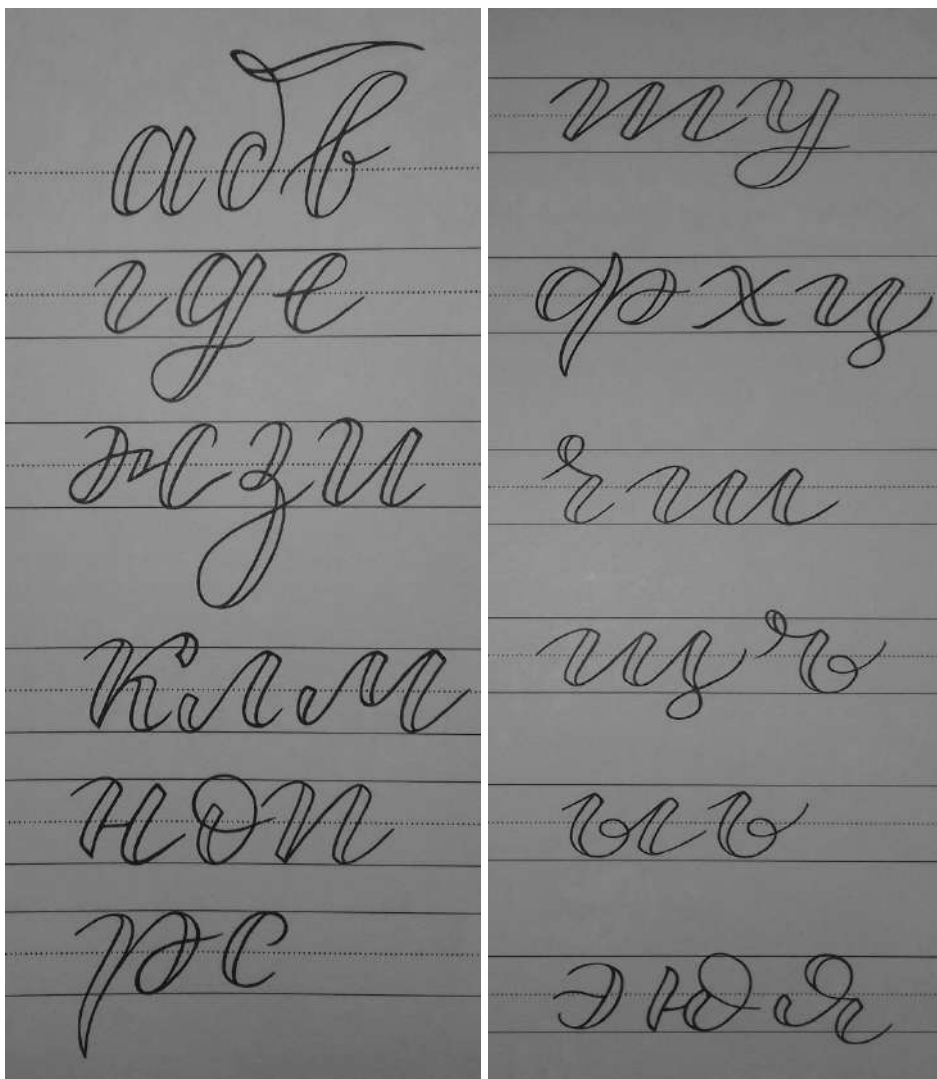 а б в
г д е
ж з и
к л м
н о п
р с
т у
ф х ц
ч ш
щ ъ
ы ь
э ю я